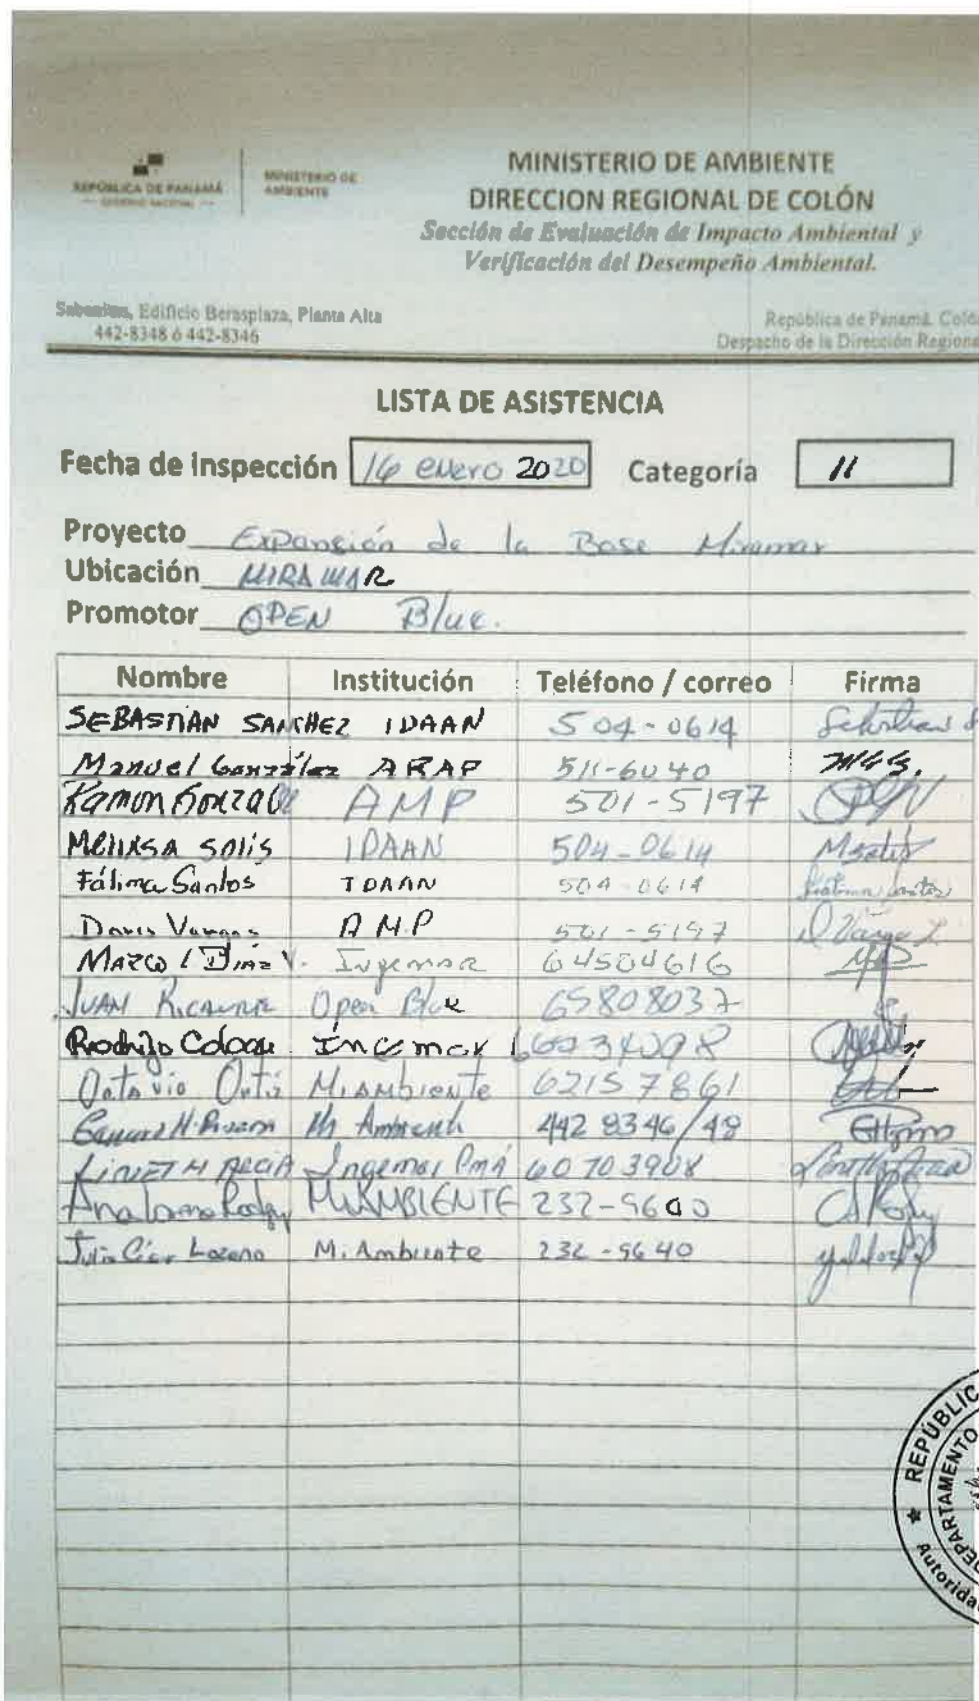 REPÚBLICA DE PANAMÁ
— GOBIERNO NACIONAL —
MINISTERIO DE
AMBIENTE
MINISTERIO DE AMBIENTE
DIRECCION REGIONAL DE COLÓN
Sección de Evaluación de Impacto Ambiental y
Verificación del Desempeño Ambiental.
Sabanitas, Edificio Berasplaza, Planta Alta
442-8348 ó 442-8346
República de Panamá. Coló
Despacho de la Dirección Regiona
LISTA DE ASISTENCIA
Fecha de Inspección 16 enero 2020 Categoría 11
Proyecto Expansión de la Base Miramar
Ubicación MIRAMAR
Promotor OPEN Blue.
Nombre Institución Teléfono / correo Firma
SEBASTIAN SANCHEZ IDAAN 504-0614 Sebastian
Manuel González ARAP 511-6040
Ramon Gonzal AMP 501-5197
Melissa Solis IDAAN 504-0614
Fátima Santos IDAAN 504-0614 Fátima Santos
Davis Vargas AMP 501-5197
MARCO L DIAZ V. Ingemar 64504616
JUAN Open Blue 65808037
Rodrigo Ingemar
Octavio MiAMBIENTE 62157861
Mi Ambiente 442 8346/48
LINETH Ingemar Pmá 60703908
Analorna MiAMBIENTE 232-9600
Julio Lozano Mi Ambiente 232-9640
REPÚBLIC
DEPARTAMENTO
Autorida